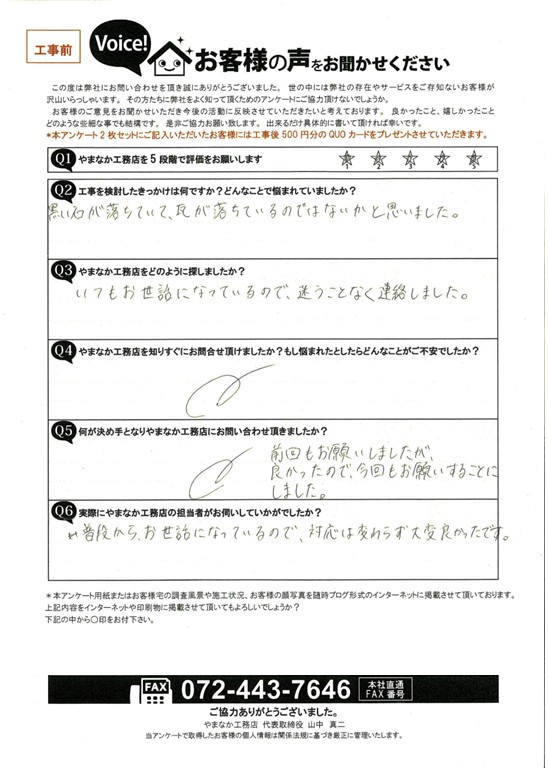 工事前
Voice!
お客様の声をお聞かせください
この度は弊社にお問い合わせを頂き誠にありがとうございました。 世の中には弊社の存在やサービスをご存知ないお客様が
沢山いらっしゃいます。 その方たちに弊社をよく知って頂くためのアンケートにご協力頂けないでしょうか。
お客様のご意見をお聞かせいただき今後の活動に反映させていただきたいと考えております。 良かったこと、嬉しかったこと
どのような些細な事でも結構です。 是非ご協力お願い致します。 出来るだけ具体的に書いて頂ければ幸いです。
*本アンケート2枚セットにご記入いただいたお客様には工事後500円分のQUOカードをプレゼントさせていただきます。
Q1 やまなか工務店を5段階で評価をお願いします
1 2 3 4 5
Q2 工事を検討したきっかけは何ですか?どんなことで悩まれていましたか?
黒い石が落ちていて、瓦が落ちているのではないかと思いました。
Q3 やまなか工務店をどのように探しましたか?
いつもお世話になっているので、迷うことなく連絡しました。
Q4 やまなか工務店を知りすぐにお問合せ頂けましたか?もし悩まれたとしたらどんなことがご不安でしたか?
Q5 何が決め手となりやまなか工務店にお問い合わせ頂きましたか?
前回もお願いしましたが、
良かったので、今回もお願いすることに
しました。
Q6 実際にやまなか工務店の担当者がお伺いしていかがでしたか?
普段から、お世話になっているので、対応は変わらず大変良かったです。
*本アンケート用紙またはお客様宅の調査風景や施工状況、お客様の顔写真を随時ブログ形式のインターネットに掲載させて頂いております。
上記内容をインターネットや印刷物に掲載させて頂いてもよろしいでしょうか?
下記の中から○印をお付下さい。
FAX 072-443-7646 本社直通
FAX番号
ご協力ありがとうございました。
やまなか工務店 代表取締役 山中 真二
当アンケートで取得したお客様の個人情報は関係法規に基づき厳正に管理いたします。